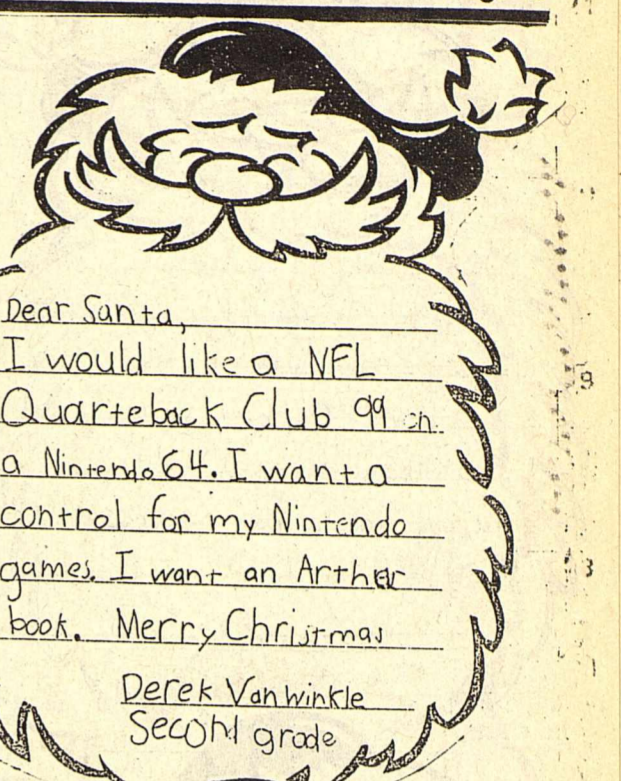 Dear Santa,
I would like a NFL
Quarteback Club 99 on
a Nintendo 64. I want a
control for my Nintendo
games. I want an Arther
book. Merry Christmas
Derek Van Winkle
Second grade